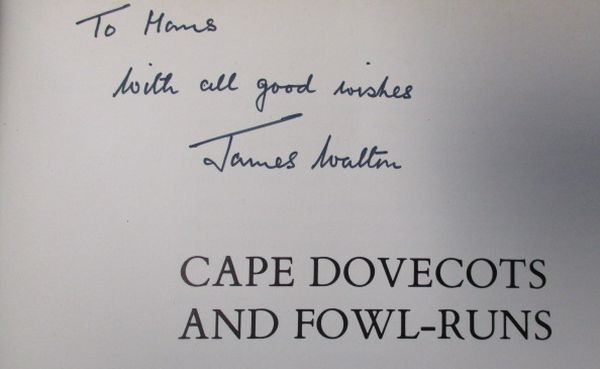 To Hans
with all good wishes
James Walton
CAPE DOVECOTS
AND FOWL-RUNS